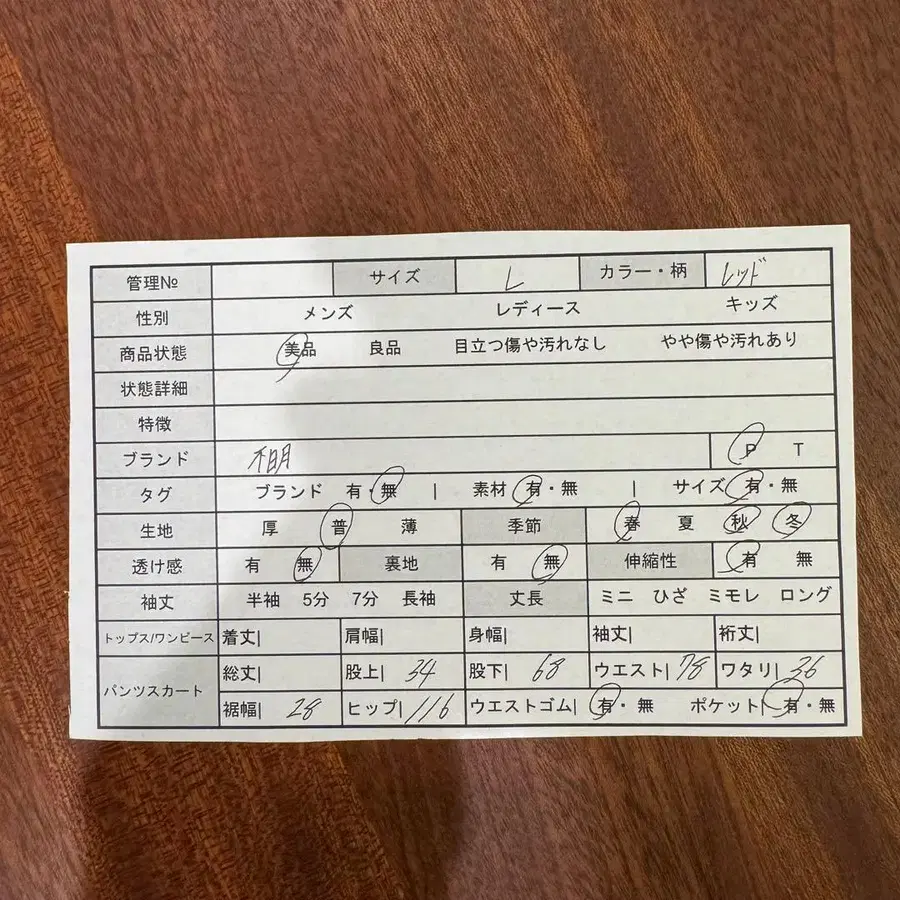 管理№ サイズ L カラー・柄 レッド
性別 メンズ レディース キッズ
商品状態 美品 良品 目立つ傷や汚れなし やや傷や汚れあり
状態詳細
特徴
ブランド 不明 P T
タグ ブランド 有・無 | 素材 有・無 | サイズ 有・無
生地 厚 普 薄 季節 春 夏 秋 冬
透け感 有 無 裏地 有 無 伸縮性 有 無
袖丈 半袖 5分 7分 長袖 丈長 ミニ ひざ ミモレ ロング
トップス/ワンピース 着丈| 肩幅| 身幅| 袖丈| 裄丈|
パンツスカート 総丈| 股上| 34 股下| 68 ウエスト| 78 ワタリ| 36
裾幅| 28 ヒップ| 116 ウエストゴム| 有・無 ポケット| 有・無